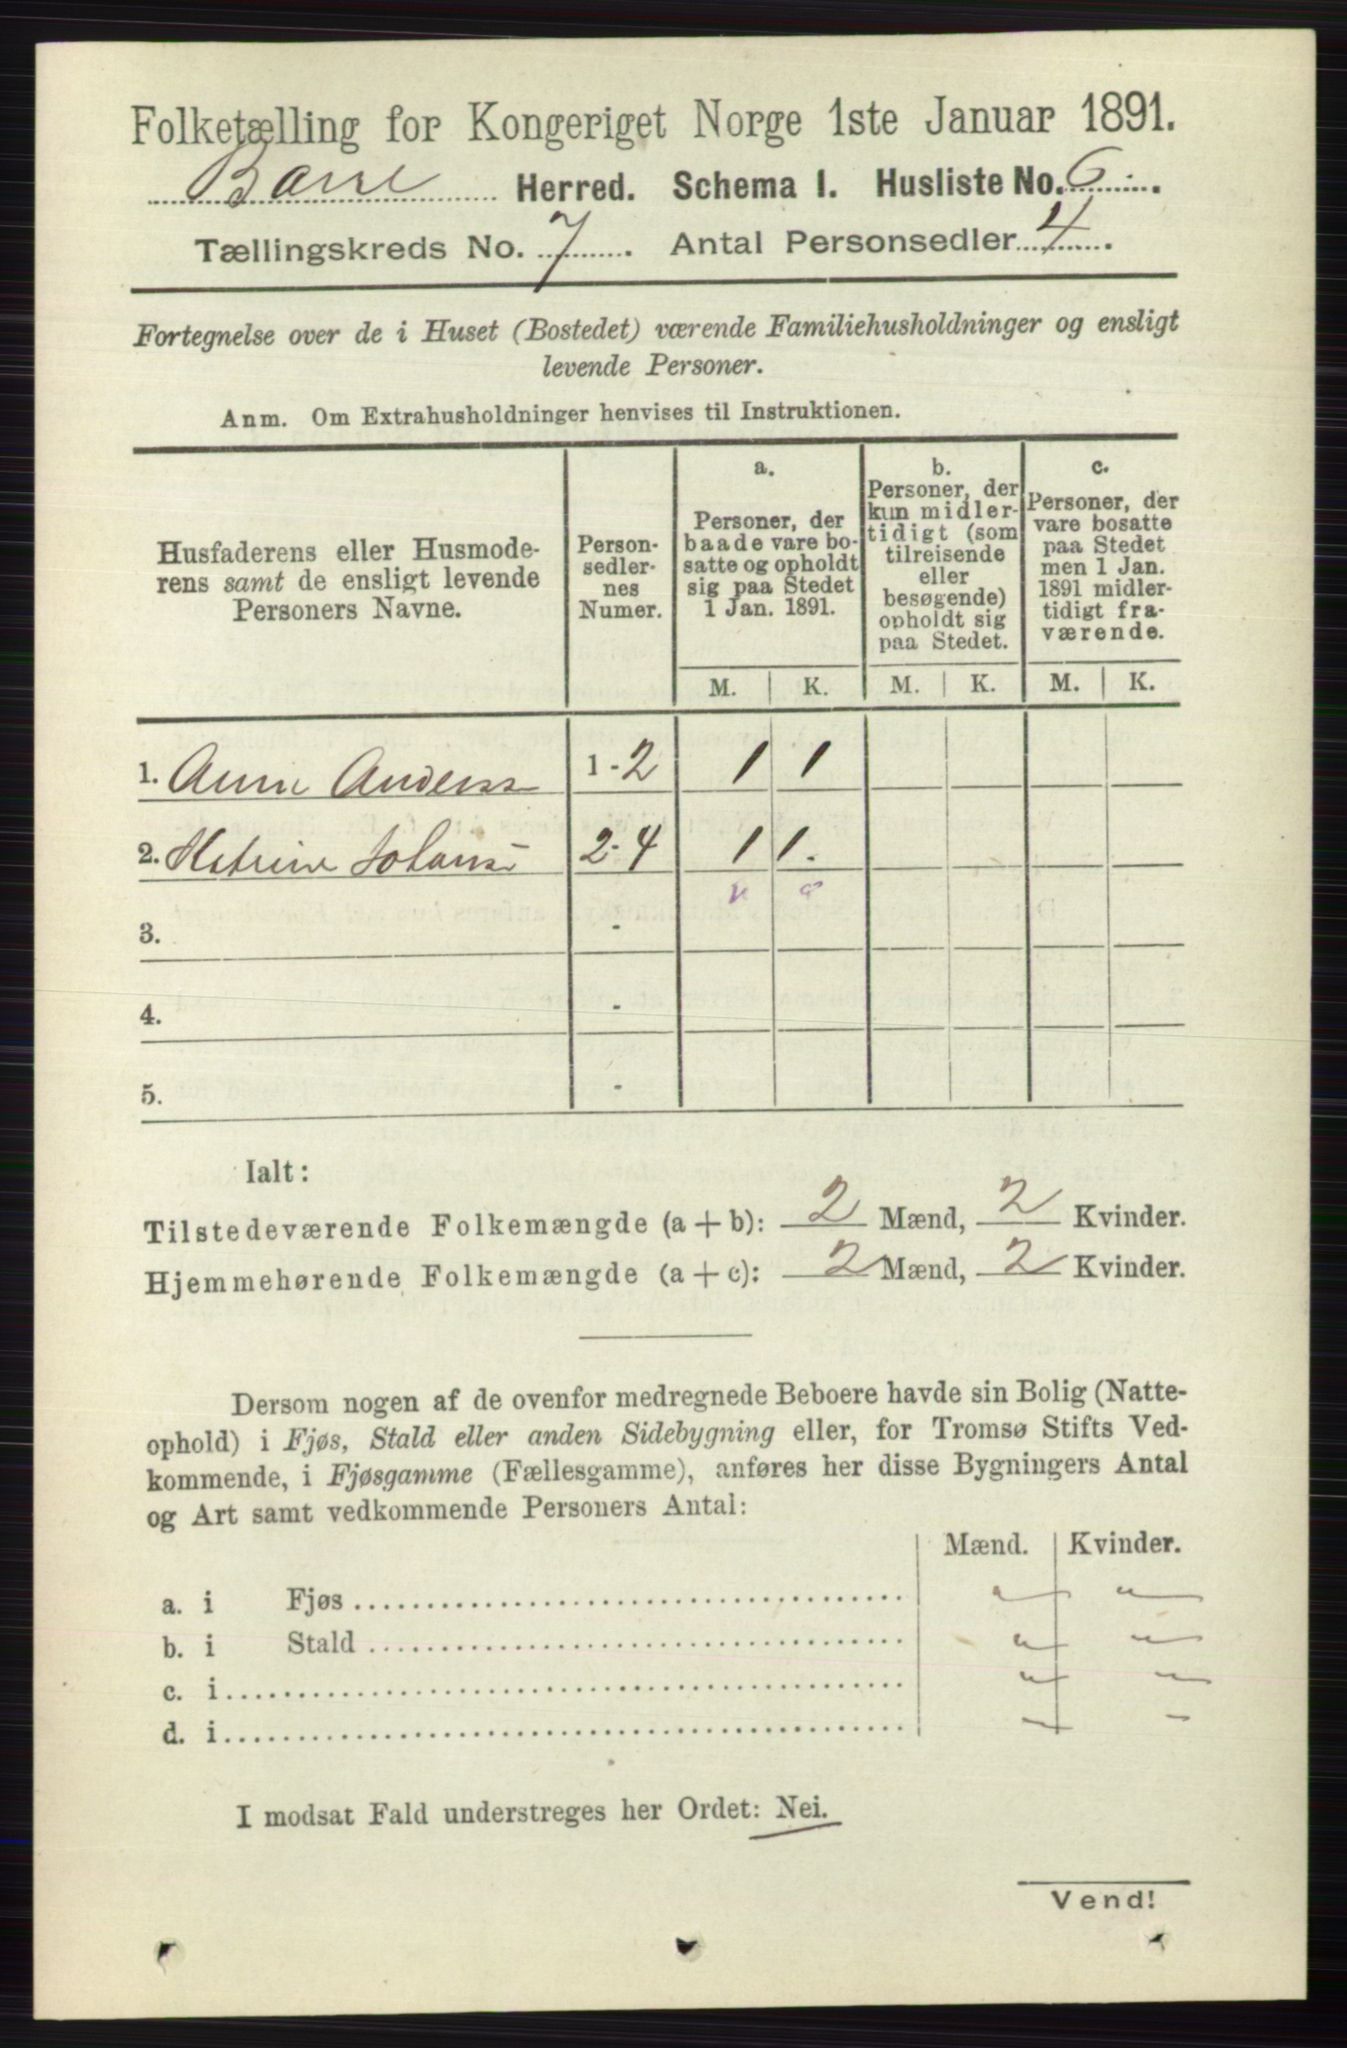 Folketælling for Kongeriget Norge 1ste Januar 1891.
Borre Herred. Schema I. Husliste No. 6.
Tællingskreds No. 7. Antal Personsedler 4.
Fortegnelse over de i Huset (Bostedet) værende Familiehusholdninger og ensligt
levende Personer.
Anm. Om Extrahusholdninger henvises til Instruktionen.
Husfaderens eller Husmode-
rens samt de ensligt levende
Personers Navne.
Person-
sedler-
nes
Numer.
a.
Personer, der
baade vare bo-
satte og opholdt
sig paa Stedet
1 Jan. 1891.
b.
Personer, der
kun midler-
tidigt (som
tilreisende
eller
besøgende)
opholdt sig
paa Stedet.
c.
Personer, der
vare bosatte
paa Stedet
men 1 Jan.
1891 midler-
tidigt fra-
værende.
M. K. M. K. M. K.
1. Anne Anderss 1-2 1 1
2. Katrine Johans 2-4 1 1.
3. -
4. -
5. -
Ialt:
Tilstedeværende Folkemængde (a + b): 2 Mænd, 2 Kvinder.
Hjemmehørende Folkemængde (a + c): 2 Mænd, 2 Kvinder.
Dersom nogen af de ovenfor medregnede Beboere havde sin Bolig (Natte-
ophold) i Fjøs, Stald eller anden Sidebygning eller, for Tromsø Stifts Ved-
kommende, i Fjøsgamme (Fællesgamme), anføres her disse Bygningers Antal
og Art samt vedkommende Personers Antal:
Mænd. Kvinder.
a. i Fjøs
b. i Stald
c. i
d. i
I modsat Fald understreges her Ordet: Nei.
Vend!